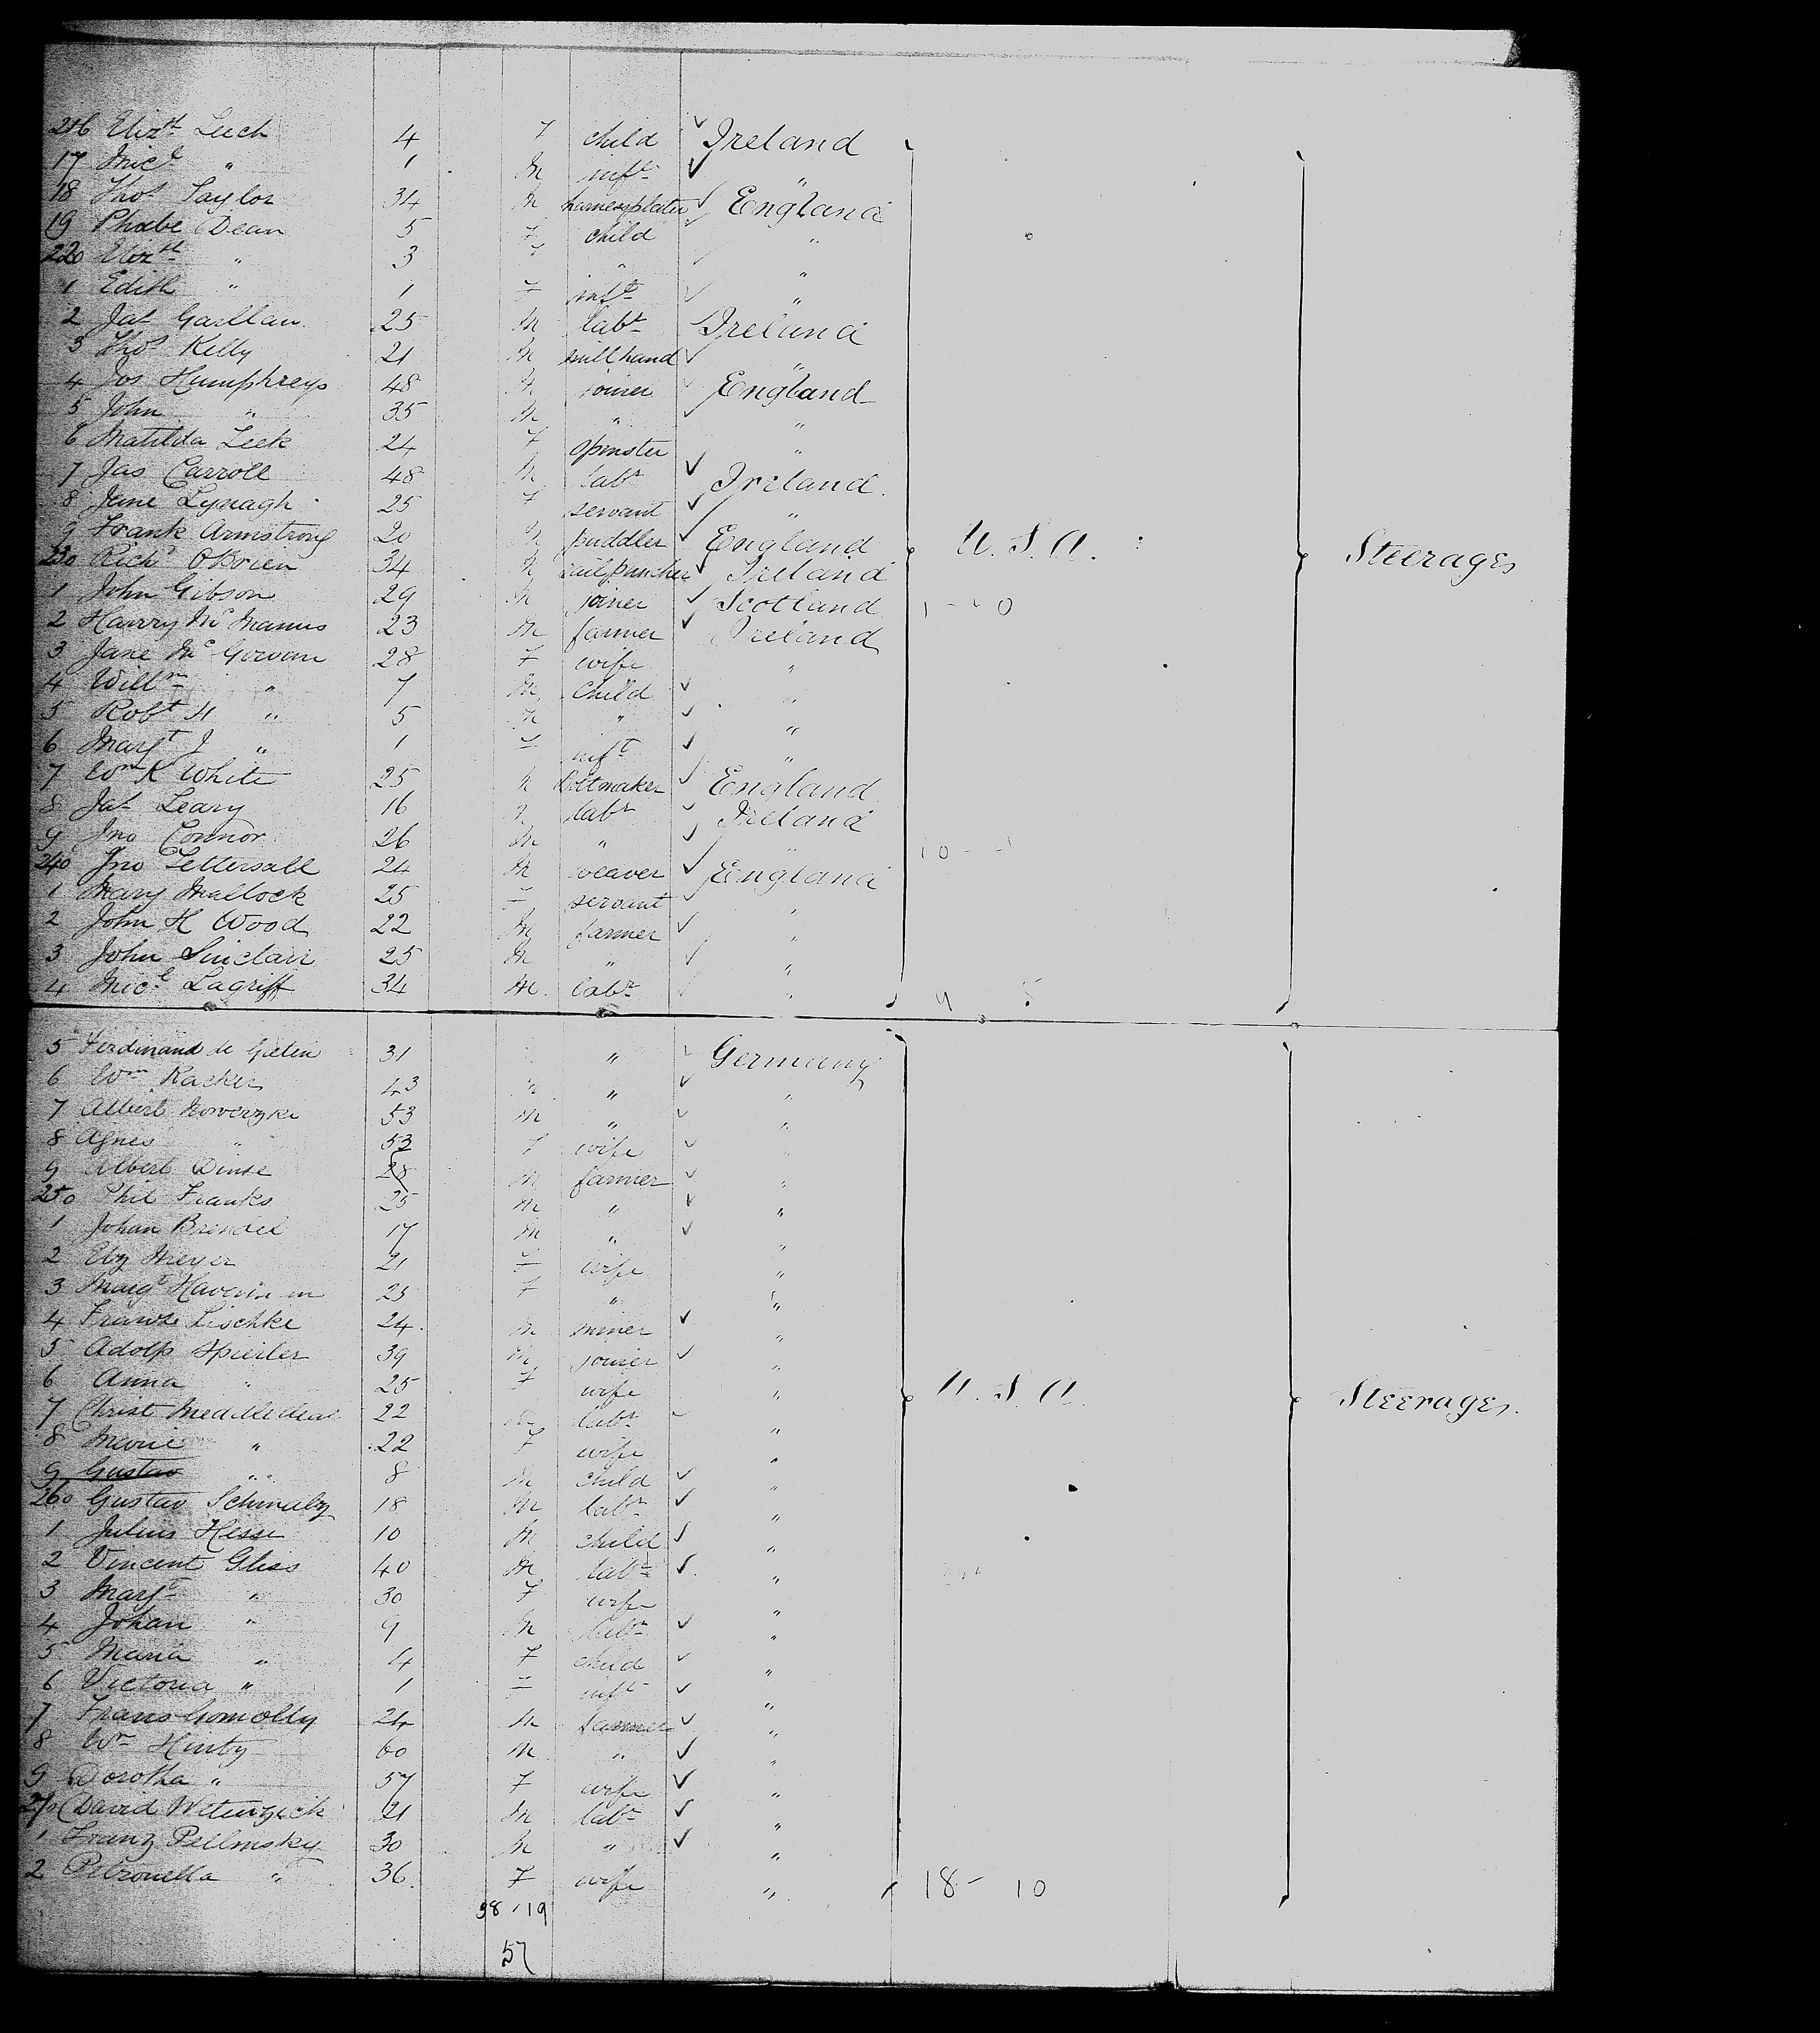 216 Elizth Leech 4 F child ✓ Ireland
17 Micl " 1 M inft ✓ "
18 Thos Taylor 34 M harnessplater ✓ England
19 Phœbe Dean 5 F child ✓ "
220 Elizth " 3 F " ✓ "
1 Edith " 1 F inft ✓ "
2 Jas Garllan 25 M labr ✓ Ireland
3 Thos Kelly 21 M millhand ✓ "
4 Jos Humphreys 48 M joiner ✓ England
5 John " 35 M " ✓ "
6 Matilda Leek 24 F spinster "
7 Jas Carroll 48 M labr ✓ Ireland
8 Jane Lynagh 25 F servant ✓ "
9 Frank Armstrong 20 M puddler ✓ England U.S.A. Steerages
230 Richd OBrien 34 M railpuncher ✓ Ireland
1 John Gibson 29 M joiner ✓ Scotland
2 Harry McManus 23 M farmer ✓ Ireland
3 Jane McGowan 28 F wife "
4 Willm " 7 M child ✓ "
5 Robt H " 5 M " ✓ "
6 Margt J " 1 F inft ✓ "
7 Wm K White 25 M Boltmaker ✓ England
8 Jas Leary 16 M labr ✓ Ireland
9 Jno Connor 26 M " ✓ "
240 Jno Tettersall 24 M weaver ✓ England
1 Mary Mallock 25 F servant ✓ "
2 John H Wood 22 M farmer ✓ "
3 John Sinclair 25 M " ✓ "
4 Micl Lagriff 34 M labr ✓ "
5 Ferdinand de 31 " ✓ Germany
6 Wm Racker 43 M " ✓ "
7 Albert 53 M " ✓ "
8 Agnes " 53 F wife ✓
9 Albert Dinse 28 M farmer ✓ "
250 Phil Franks 25 M " ✓ "
1 Johan Brendel 17 M " ✓ "
2 Eliz Meyer 21 F wife "
3 Margt 25 F " "
4 Franz Lischke 24 M miner ✓ "
5 Adolp Spierler 39 M joiner ✓ "
6 Anna " 25 F wife " U.S.A. Steerages.
7 Christ 22 M labr ✓ "
8 Marie " 22 F wife "
9 Gustav " 8 M child ✓ "
260 Gustav Schmalz 18 M labr ✓ "
1 Julius Hesse 10 M child ✓ "
2 Vincent Gliss 40 M labr ✓ "
3 Margt " 30 F wife "
4 Johan " 9 M labr ✓ "
5 Maria " 4 F child ✓ "
6 Victoria " 1 F inft ✓ "
7 Frans Gomolly 24 M farmer ✓ "
8 Wm Hintz 60 M " ✓ "
9 Dorotha " 57 F wife ✓ "
270 David 21 M labr ✓ "
1 Franz Pellmsky 30 M " ✓ "
2 Petronella " 36 F wife " 18 - 10
38 / 19
57